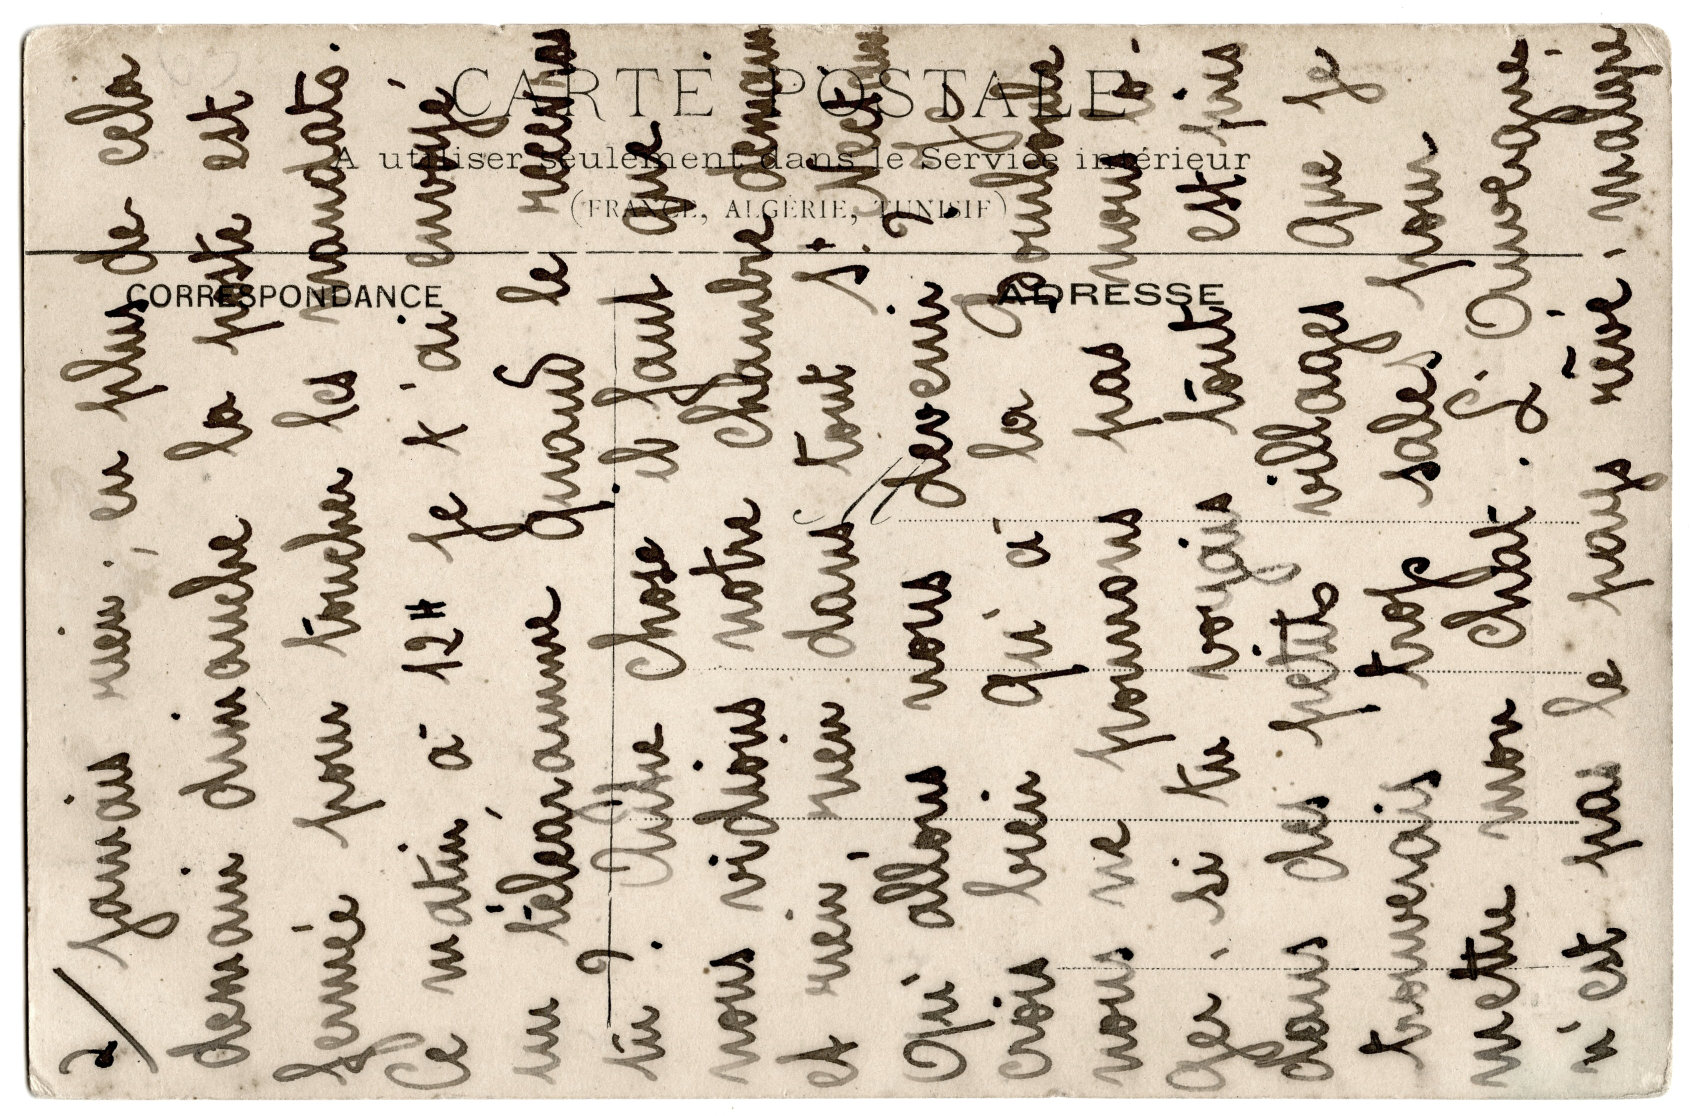 CARTE POSTALE
A utiliser seulement dans le Service intérieur
(FRANCE, ALGÉRIE, TUNISIE)
CORRESPONDANCE
ADRESSE
M
2/ jamais rien, en plus de cela
demain dimanche la poste est
fermée pour toucher les mandats.
Ce matin, à 12H je t'ai envoyé
un télégramme quand le recevras
tu ? Autre chose il faut que
nous vidions notre chambre demain
et rien, rien dans tout S.
Qu'allons nous devenir ?
crois bien qu'à la
nous ne pouvons pas nous
si tu voyais tout est pris
dans des petits villages que je
trouverais trop sales pour
mettre mon chat. Quoique
n'est pas le pays rêvé, malgré